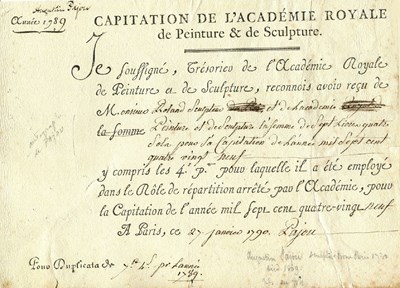 Augustin Pajou
Année 1789
CAPITATION DE L'ACADÉMIE ROYALE
de Peinture & de Sculpture.
Je soussigné, Trésorier de l'Académie Royale
de Peinture & de Sculpture, reconnois avoir reçu de
Monsieur Roland Sculpteur et de Lacademie
la somme Peinture et de Sculpture la somme de Sept Livres quatre
Sols pour la Capitation de Lannée mil Sept cent
quatre vingt neuf
y compris les 4.s pr. pour laquelle il a été employé
dans le Rôle de répartition arrêté par l'Académie, pour
la Capitation de l'année mil sept cent quatre-vingt neuf
A Paris, ce 27 janvier 1790. Pajou
Augustin Pajou sculpteur Paris 1730
Pour Duplicata de 7lt 4s pr Lannée
1789.